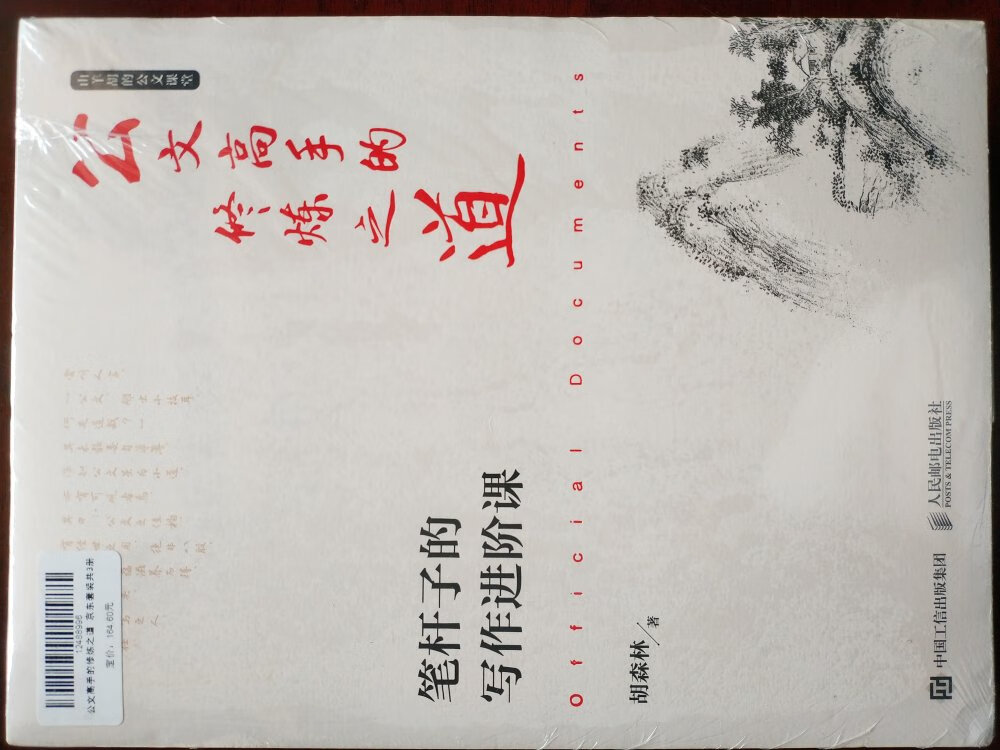 山羊胡的公文课堂
公文高手的
修炼之道
笔杆子的
写作进阶课
Official Documents
胡森林/著
中国工信出版集团
人民邮电出版社
POSTS & TELECOM PRESS
12488996
公文高手的修炼之道 京东套装共3册
定价：164.60元